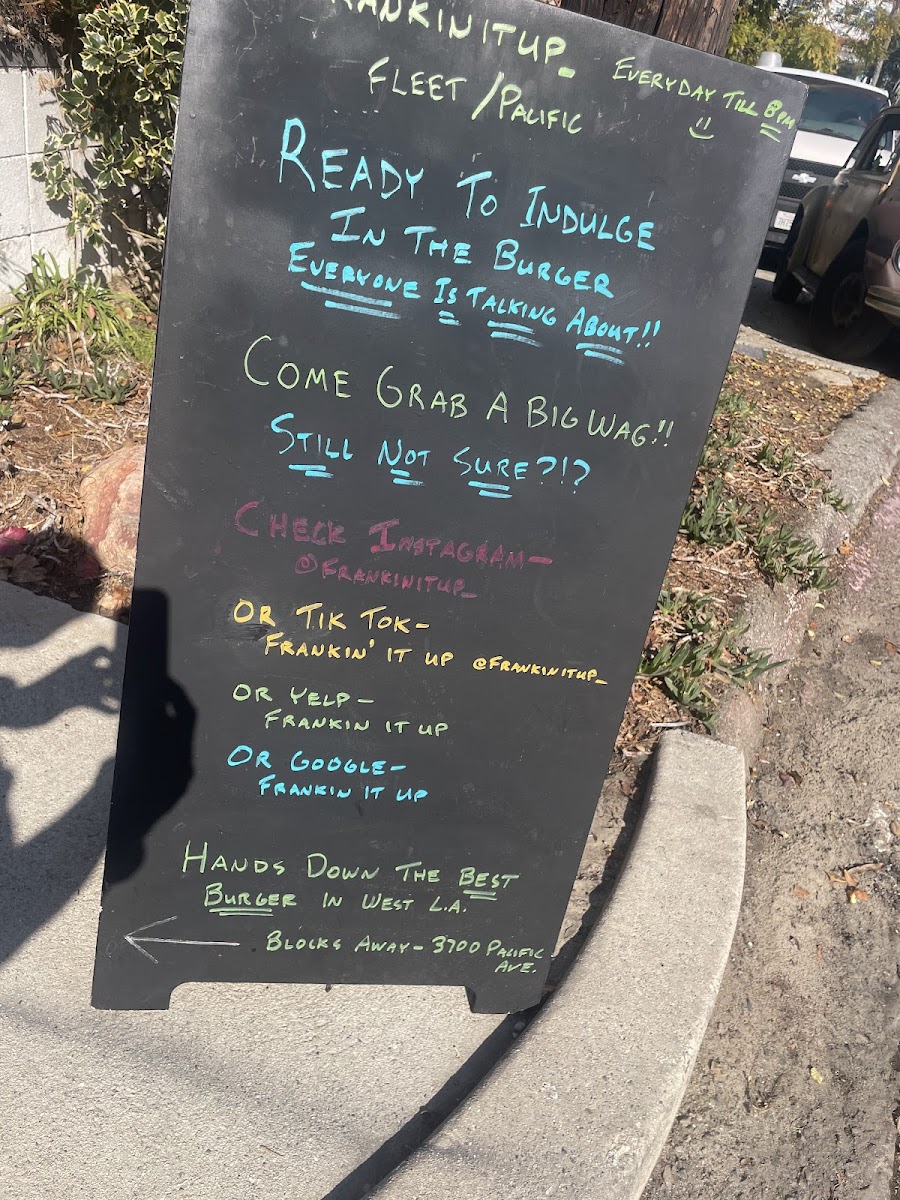 RANKINITUP_
FLEET/PACIFIC
EVERYDAY TILL 8PM
READY TO INDULGE
IN THE BURGER
EVERYONE IS TALKING ABOUT!!
COME GRAB A BIG WAG!!
STILL NOT SURE?!?
CHECK INSTAGRAM-
@FRANKINITUP_
OR TIK TOK-
FRANKIN' IT UP @FRANKINITUP_
OR YELP-
FRANKIN IT UP
OR GOOGLE-
FRANKIN IT UP
HANDS DOWN THE BEST
BURGER IN WEST L.A.
BLOCKS AWAY- 3700 PACIFIC
AVE.